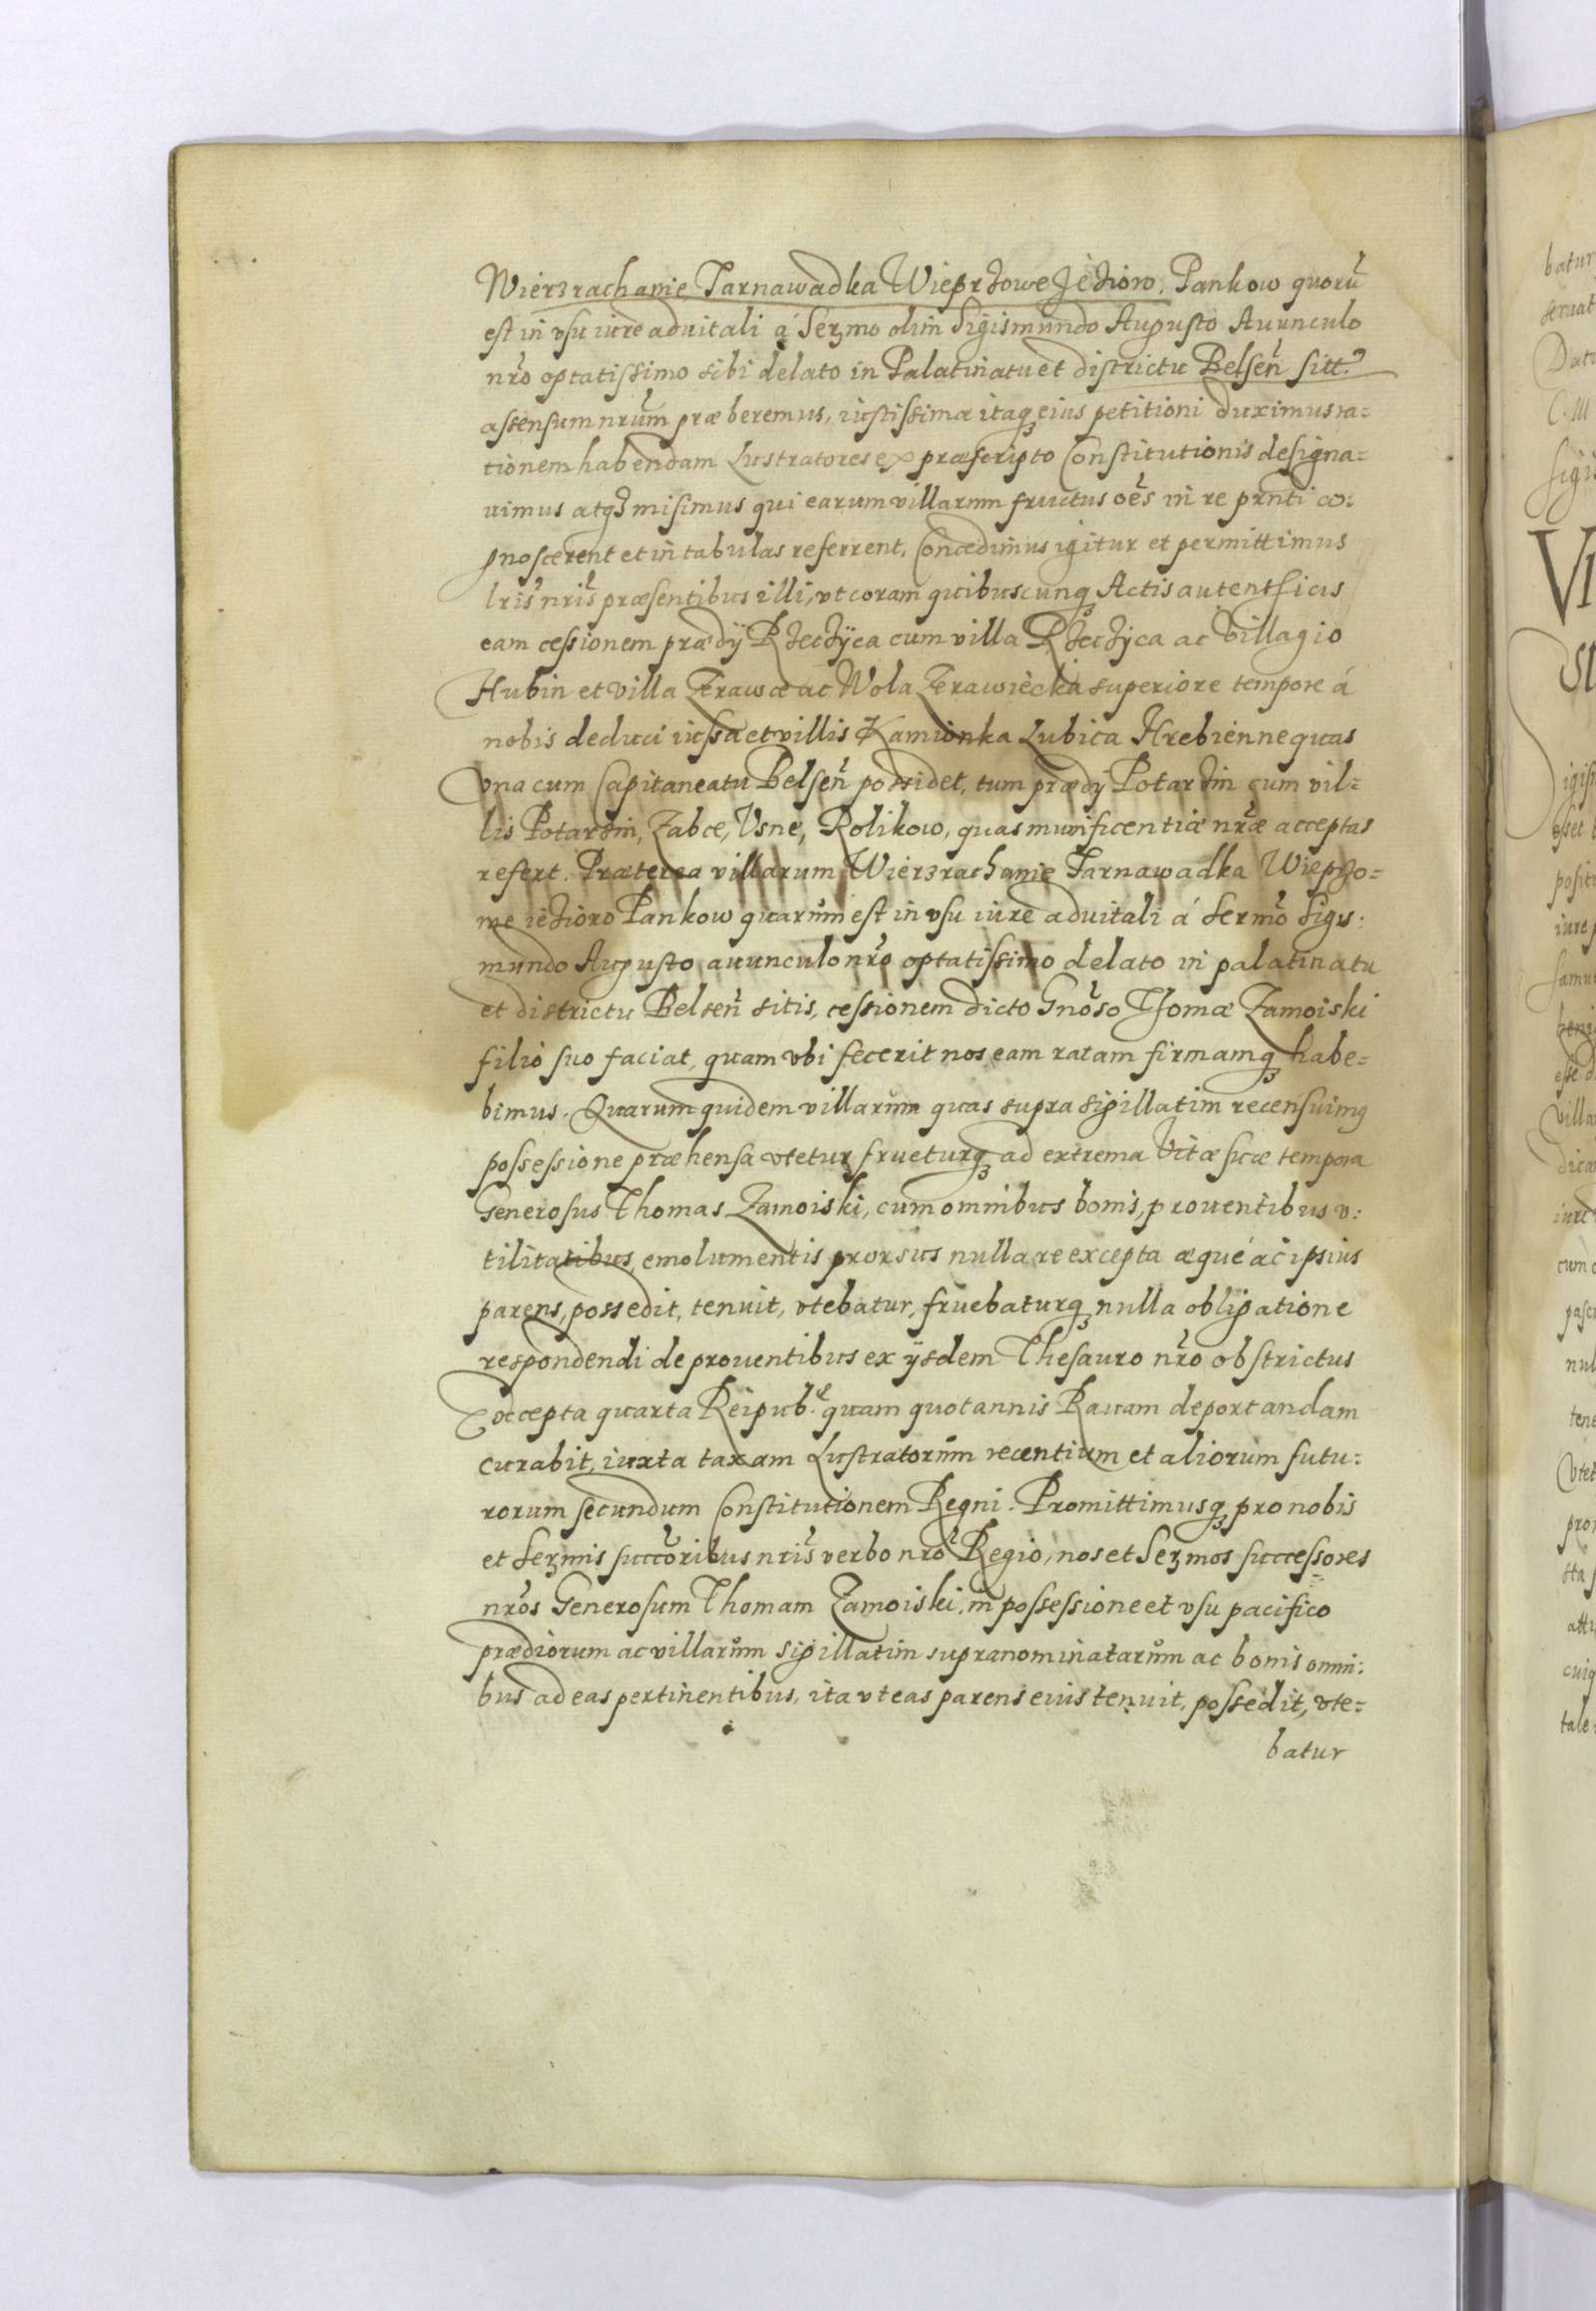 Wierzrachanie Tarnawadka Wieprzowe Jezioro, Pankow quorũ
est in vsu iure aduitali á Sermo olim Sigismundo Augusto Auunculo
nr̃o optatissimo sibi delato in Palatinatu et districtu Belseñ sitt.
assensum nrũm præberemus, iustissimæ itaq; eius petitioni duximus ra=
tionem habendam Lustratores ex præscripto Constitutionis designa=
uimus atq; misimus qui earum villarum fructus oẽs in re prñti co:
gnoscerent et in tabulas referrent, Concedimus igitur et permittimus
lris nrĩs præsentibus illi, vt coram quibuscunq; Actis autenthicis
eam cessionem prædÿ Rzeczÿca cum villa Rzeczÿca ac Villagio
Hubin et villa Zerawce ac Wola Zerawiecka superiore tempore á
nobis deduci iussa et villis Kamionka Lubica Hrebienne quas
vna cum Capitaneatu Belseñ possidet, tum prædÿ Potarzin cum vil=
lis Potarzin, Zabce, Vsne, Rolikow, quas munificentiæ nr̃æ acceptas
refert. Præterea villarum Wierzrachanie Tarnawadka Wieprzo=
we iezioro Pankow quarum est in vsu iure aduitali á Sermõ Sigis:
mundo Augusto auunculo nr̃o optatissimo delato in palatinatu
et districtu Belseñ sitis, cessionem dicto Gnõso Thomæ Zamoiski
filio suo faciat, quam vbi fecerit nos eam ratam firmamq; habe=
bimus. Quarum quidem villarum quas supra sigillatim recensuimq
possessione præhensa vtetur frueturq; ad extrema Vitæ suæ tempora
Generosus Thomas Zamoiski, cum omnibus bonis, prouentibus v:
tilitatibus, emolumentis prorsus nulla re excepta æqué ac ipsius
parens, possedit, tenuit, vtebatur, fruebaturq; nulla obligatione
respondendi de prouentibus ex ÿsdem Thesauro nr̃o obstrictus
Excepta quarta Reipub.e quam quotannis Rauam deportandam
curabit, iuxta taxam Lustratorum recentium et aliorum futu:
rorum secundum Constitutionem Regni. Promittimusq; pro nobis
et Sermis succõribus nrĩs verbo nrõ Regio, nos et Sermos successores
nrõs Generosum Thomam Zamoiski, in possessione et vsu pacifico
prædiorum ac villarum sigillatim supranominatarum ac bonis omni:
bus ad eas pertinentibus, ita vt eas parens eius tenuit, possedit, vte=
batur